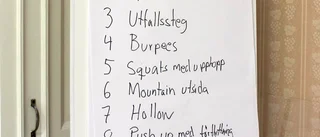 3 Utfallssteg
4 Burpees
5 Squats med upphopp
6 Mountain utsida
7 Hollow
8 Push up med